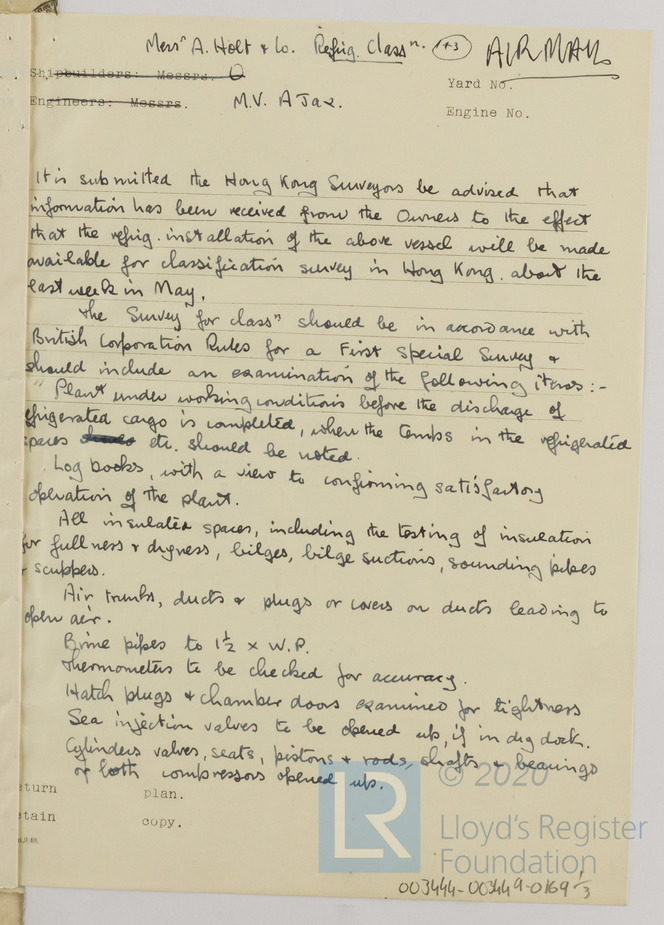 Messrs A. Holt & Co. Refrig. Classn. 1+3 AIR MAIL
Shipbuilders: Messrs.
Yard No.
Engineers: Messrs. M.V. AJax.
Engine No.
It is submitted the Hong Kong Surveyors be advised that
information has been received from the Owners to the effect
that the refrig. installation of the above vessel will be made
available for classification survey in Hong Kong. about the
last week in May.
The Survey for classn should be in accordance with
British Corporation Rules for a First Special Survey &
should include an examination of the following items:-
" Plant under working conditions before the discharge of
efrigerated cargo is completed, when the temps in the refrigerated
spaces etc. should be noted.
Log books, with a view to confirming satisfactory
operation of the plant.
All insulated spaces, including the testing of insulation
for fullness & dryness, bilges, bilge suctions, sounding pipes
& scuppers.
Air trunks, ducts & plugs or covers on ducts leading to
open air.
Brine pipes to 1½ x W.P.
Thermometers to be checked for accuracy.
Hatch plugs & chamber doors examined for tightness
Sea injection valves to be opened up, if in dry dock.
Cylinders valves, seats, pistons & rods, shafts & bearings
of both compressors opened up.
eturn plan.
etain copy.
© 2020
LR
Lloyd's Register
Foundation
003444-003449-0169 1/3